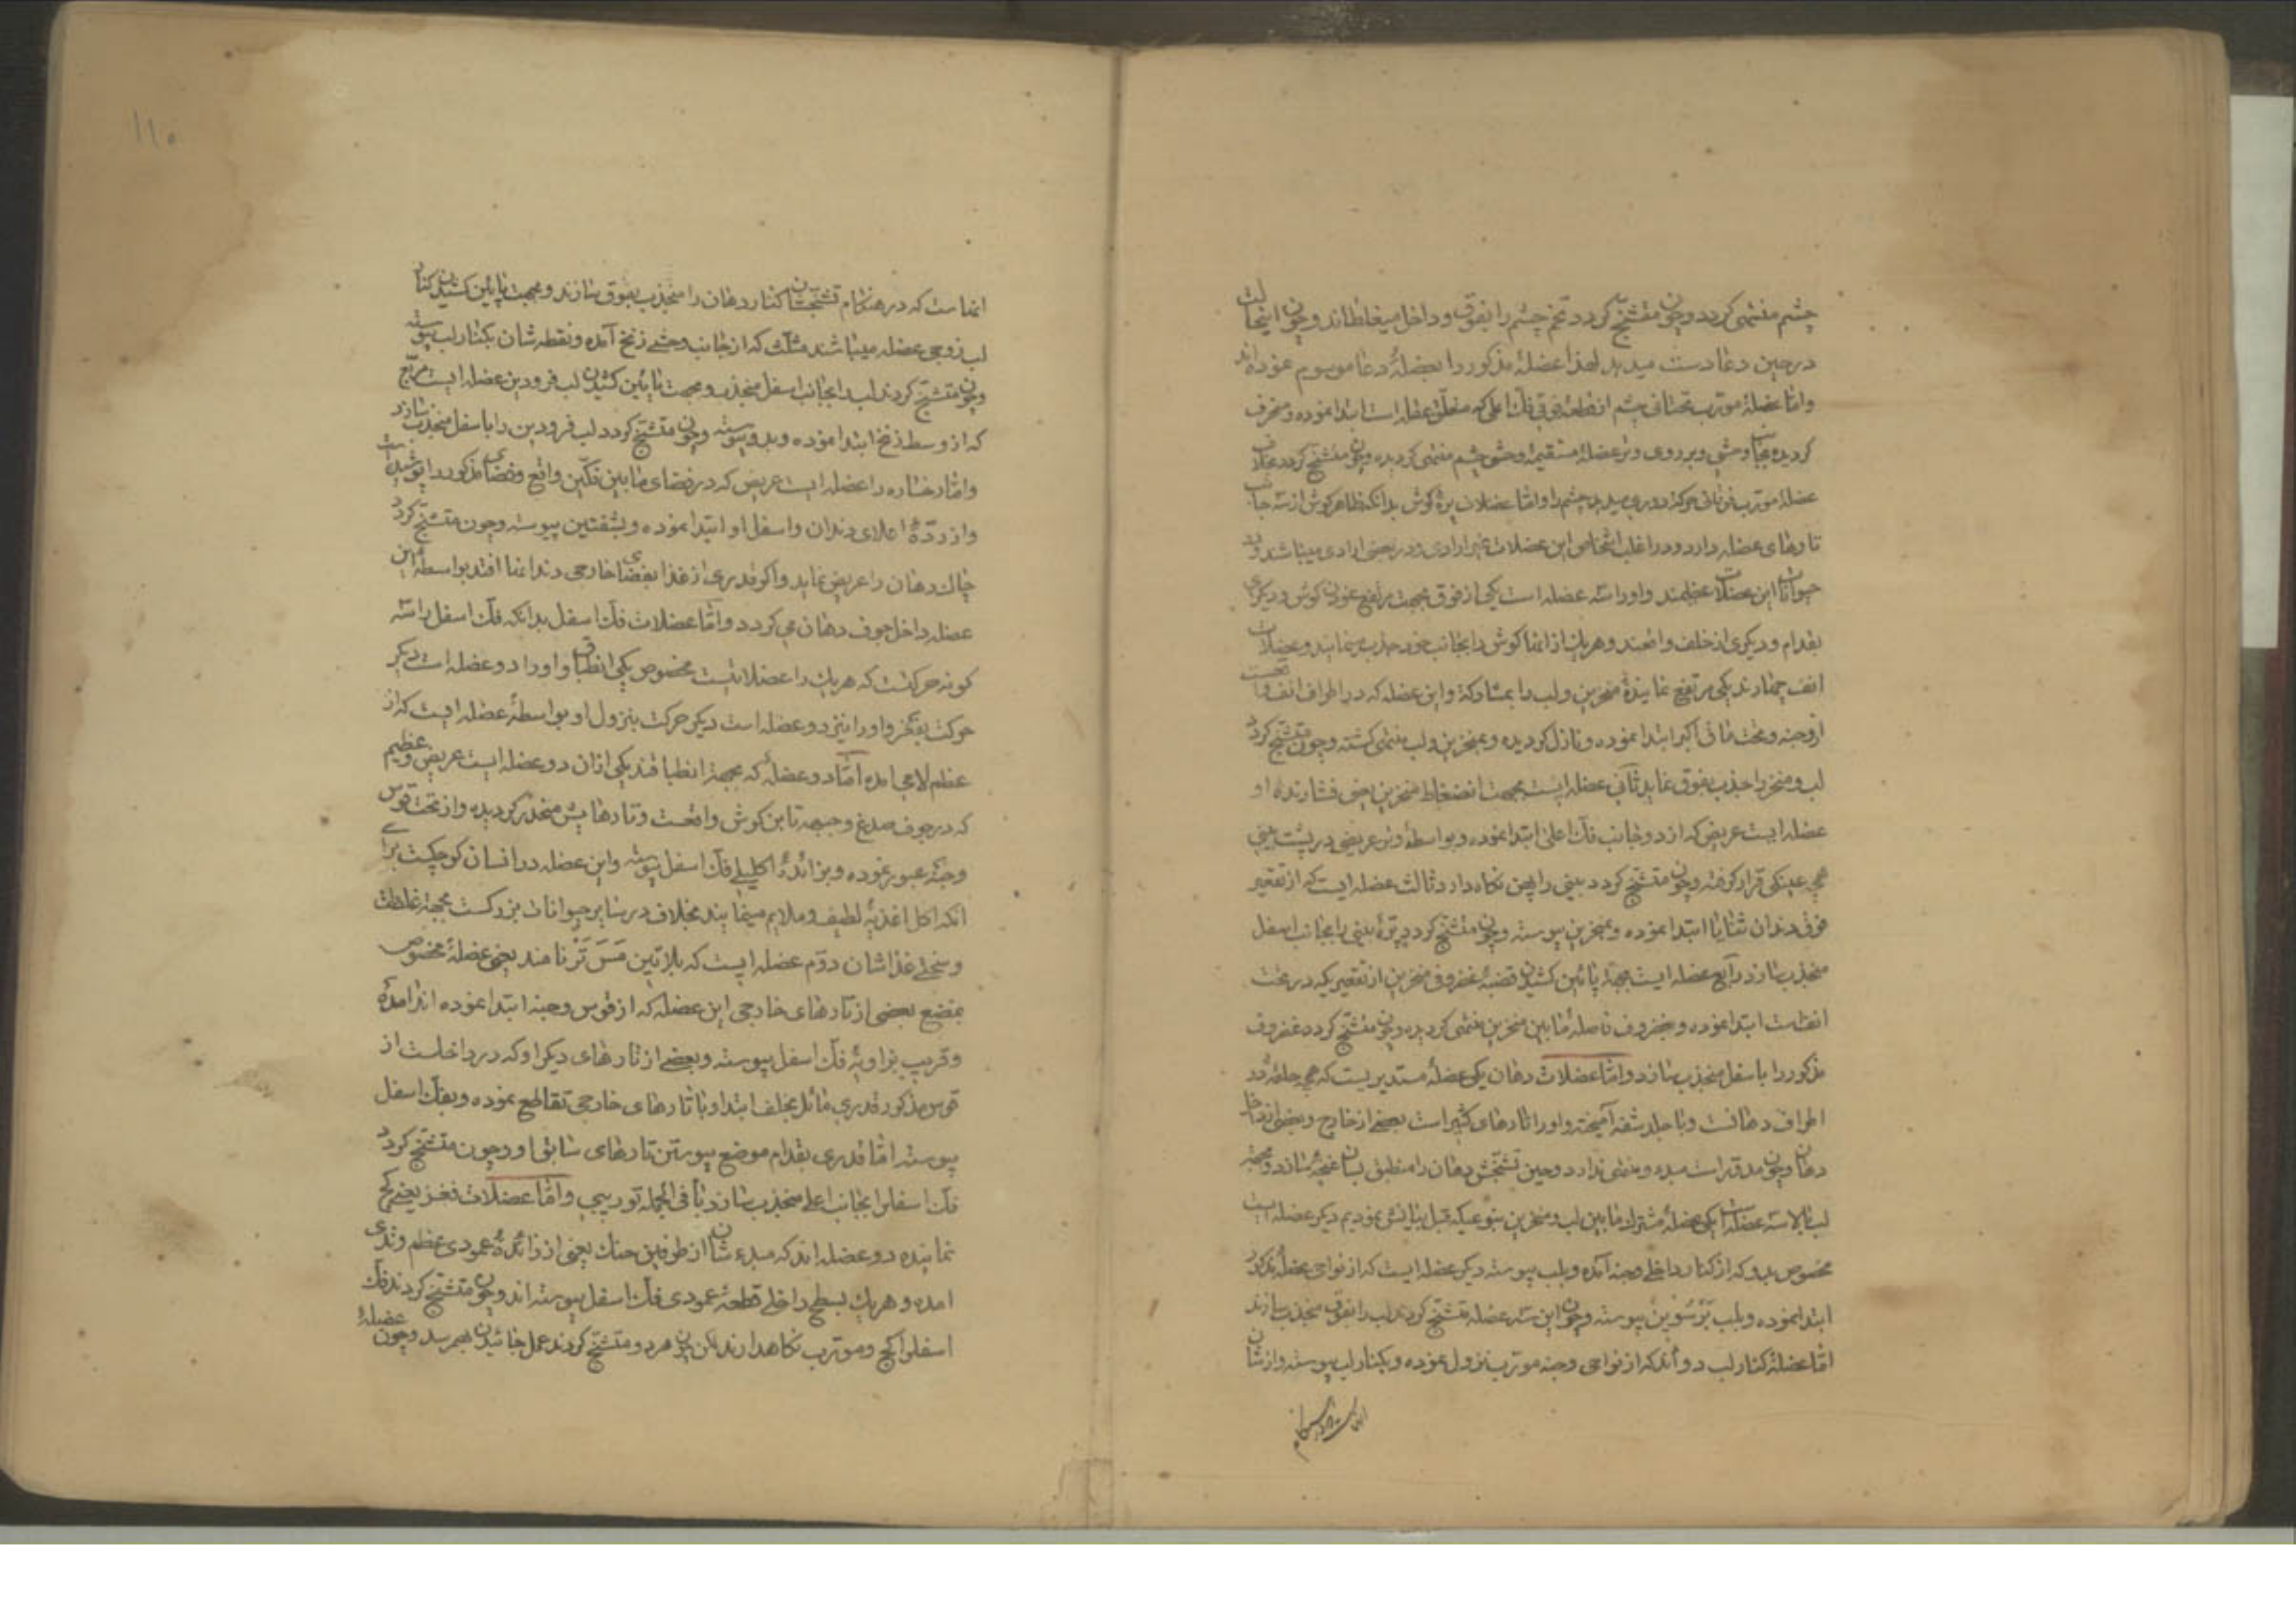 چشم منتهی کردد وچون متشنّج کردد تخم چشم را بفوق و داخل میغلطاند وچون اینحالت
درحین دعا دست میدهد لهذا عضلهٔ مذکور را بعضلهٔ دعا موسوم نموده‌اند
وامّا عضلهٔ مورّب تحتانی چشم از قطعهٔ فوقی فکّ اعلی که متعلّق عظام است ابتدا نموده ومنحرف
کردیده بجانب وحشی وبر روی وتر عضلهٔ مستقیمهٔ وحشی چشم منتهی کردیده وچون متشنّج کردد بخلاف
عضلهٔ مورّب فوقانی حرکة دوری میدهد چشم را وامّا عضلات پرهٔ کوش بدانکه ظاهر کوش از سه جانب
تارهای عضله دارد ودر اغلب اشخاص این عضلات غیر ارادی ودر بعضی ارادی میباشند ودر
حیوانات این عضلات عظیمند واورا سه عضله است یکی از فوق بجهت مرتفع نمودن کوش ودیکری
بقدام ودیکری از خلف واقعند وهریک از انها کوش را بجانب خود جذب مینمایند وعضلات
انف چهارند یکی مرتفع نمایندهٔ منخرین ولب را بمشارکة واین عضله که در اطراف انف واقعست
از وجنه وتحت ماق اکبر ابتدا نموده ونازل کردیده وبمنخرین ولب منتهی کشته وچون متشنّج کردد
لب ومنخر را جذب بفوق نماید ثانی عضله ایست بجهت انضغاط منخرین یعنی فشارنده او
عضله ایست عریض که از دو جانب فکّ اعلی ابتدا نموده وبواسطهٔ وتر عریضی در پشت بینی
همچو عینکی قرار کرفته وچون متشنّج کردد بینی را پهن نکاه دارد ثالث عضله ایست که از تقعیر
فوق دندان ثنایا ابتدا نموده وبمنخرین پیوسته وچون متشنّج کردد پرّهٔ بینی را بجانب اسفل
منجذب سازد رابع عضله ایست بجهة پائین کشیدن قصبهٔ غضروف منخرین از تقعیریکه در تحت
انفست ابتدا نموده وبغضروف فاصلهٔ مابین منخرین منتهی کردیده وچون متشنّج کردد غضروف
مذکور را باسفل منجذب سازد وامّا عضلات دهان یکی عضلهٔ مستدیریست که همچو حلقه در
اطراف دهانست وبا جلد شفه آمیخته واورا تارهای کثیر است بعضی از خارج وبعضی از داخل
دهان وچون مدوّر است مبدء ومنتهی ندارد وحین تشنّجش دهان را منطبق بسان غنچه سازد وبجهة
لب بالا سه عضله است یکی عضلهٔ مشترک مابین لب ومنخرین بنوعیکه قبل بیانش نمودیم دیکر عضله ایست
مخصوص بدو که از کنار داخلی وجنه آمده وبلب پیوسته دیکر عضله ایست که از نواحی عضلهٔ مذکور
ابتدا نموده وبلب بَرْسُوین پیوسته وچون این سه عضله متشنّج کردند لب را بفوق منجذب سازند
امّا عضلهٔ کنار لب دو اند که از نواحی وجنه مورّب نزول نموده وبکنار لب پیوسته واز شان
۱۱۵
انهاست که در هنکام تشنّجشان کنار دهان را منجذب بفوق سازند وبجهت پائین کشیدن کنار
لب زوجی عضله میباشند مثلّث که از جانب وحشی زنخ آمده ونقطه شان بکنار لب پیوسته
وچون متشنّج کردند لب را بجانب اسفل منجذب وبجهت پائین کشیدن لب فرودین عضله ایست مربّع
که از وسط زنخ ابتدا نموده وبدو پیوسته وچون متشنّج کردد لب فرودین را باسفل منجذب سازد
وامّا رخساره را عضله ایست عریض که در فضای مابین فکّین واقع وفضای مذکور را پوشیده است
واز ردّهٔ اعلای دندان واسفل او ابتدا نموده وبشفتین پیوسته وچون متشنّج کردد
چاک دهان را عریض نماید واکر قدری از غذا بفضای خارجی دندانها افتد بواسطهٔ این
عضله داخل جوف دهان میکردد وامّا عضلات فکّ اسفل بدانکه فکّ اسفل را سه
کونه حرکتست که هریک را عضلاتیست مخصوص یکی انطباق واورا دو عضله است دیکر
حرکت بفکّ واورا نیز دو عضله است دیکر حرکت بنزول او بواسطهٔ عضله ایست که از
عظم لامی امده امّا دو عضلهٔ که بجهة انطباقند یکی ازان دو عضله ایست عریض وعظیم
که در جوف صدغ وجبهه تا بن کوش واقعست وتارهایش منحدر کردیده واز تحت قوس
وجنه عبور نموده وبزائدهٔ اکلیلی فکّ اسفل پیوسته واین عضله در انسان کوچکست برای
انکه اکل اغذیهٔ لطیف وملایم مینمایند بخلاف در سایر حیوانات بزرکست بجهة غلظت
وسختی غذاشان دوّم عضله ایست که بلاتین مَسَ تَرْ نامند یعنی عضلهٔ مخصوص
بمضغ بعضی از تارهای خارجی این عضله که از قوس وجنه ابتدا نموده اند امدهٔ
وقریب بزاویهٔ فکّ اسفل پیوسته وبعضی از تارهای دیکر او که در داخلست از
قوس مذکور قدری مائل بخلف ابتدا وبا تارهای خارجی تقاطع نموده وبفکّ اسفل
پیوسته امّا قدری بقدام موضع پیوستن تارهای سابق او وچون متشنّج کردد
فکّ اسفل را بجانب اعلی منجذب سازد بافی الجمله توریبی وامّا عضلات فغز یعنی کج
نماینده دو عضله اند که مبدء شان از طرفین حنک یعنی از زائدهٔ عمودی عظم وتدی
امده وهریک بسطح داخلی قطعهٔ عمودی فکّ اسفل پیوسته اند وچون متشنّج کردند فکّ
اسفل را کج ومورّب نکاهدارند لکن چون هردو متشنّج کردند عمل خائیدن بهم رسد وچون عضلهٔ